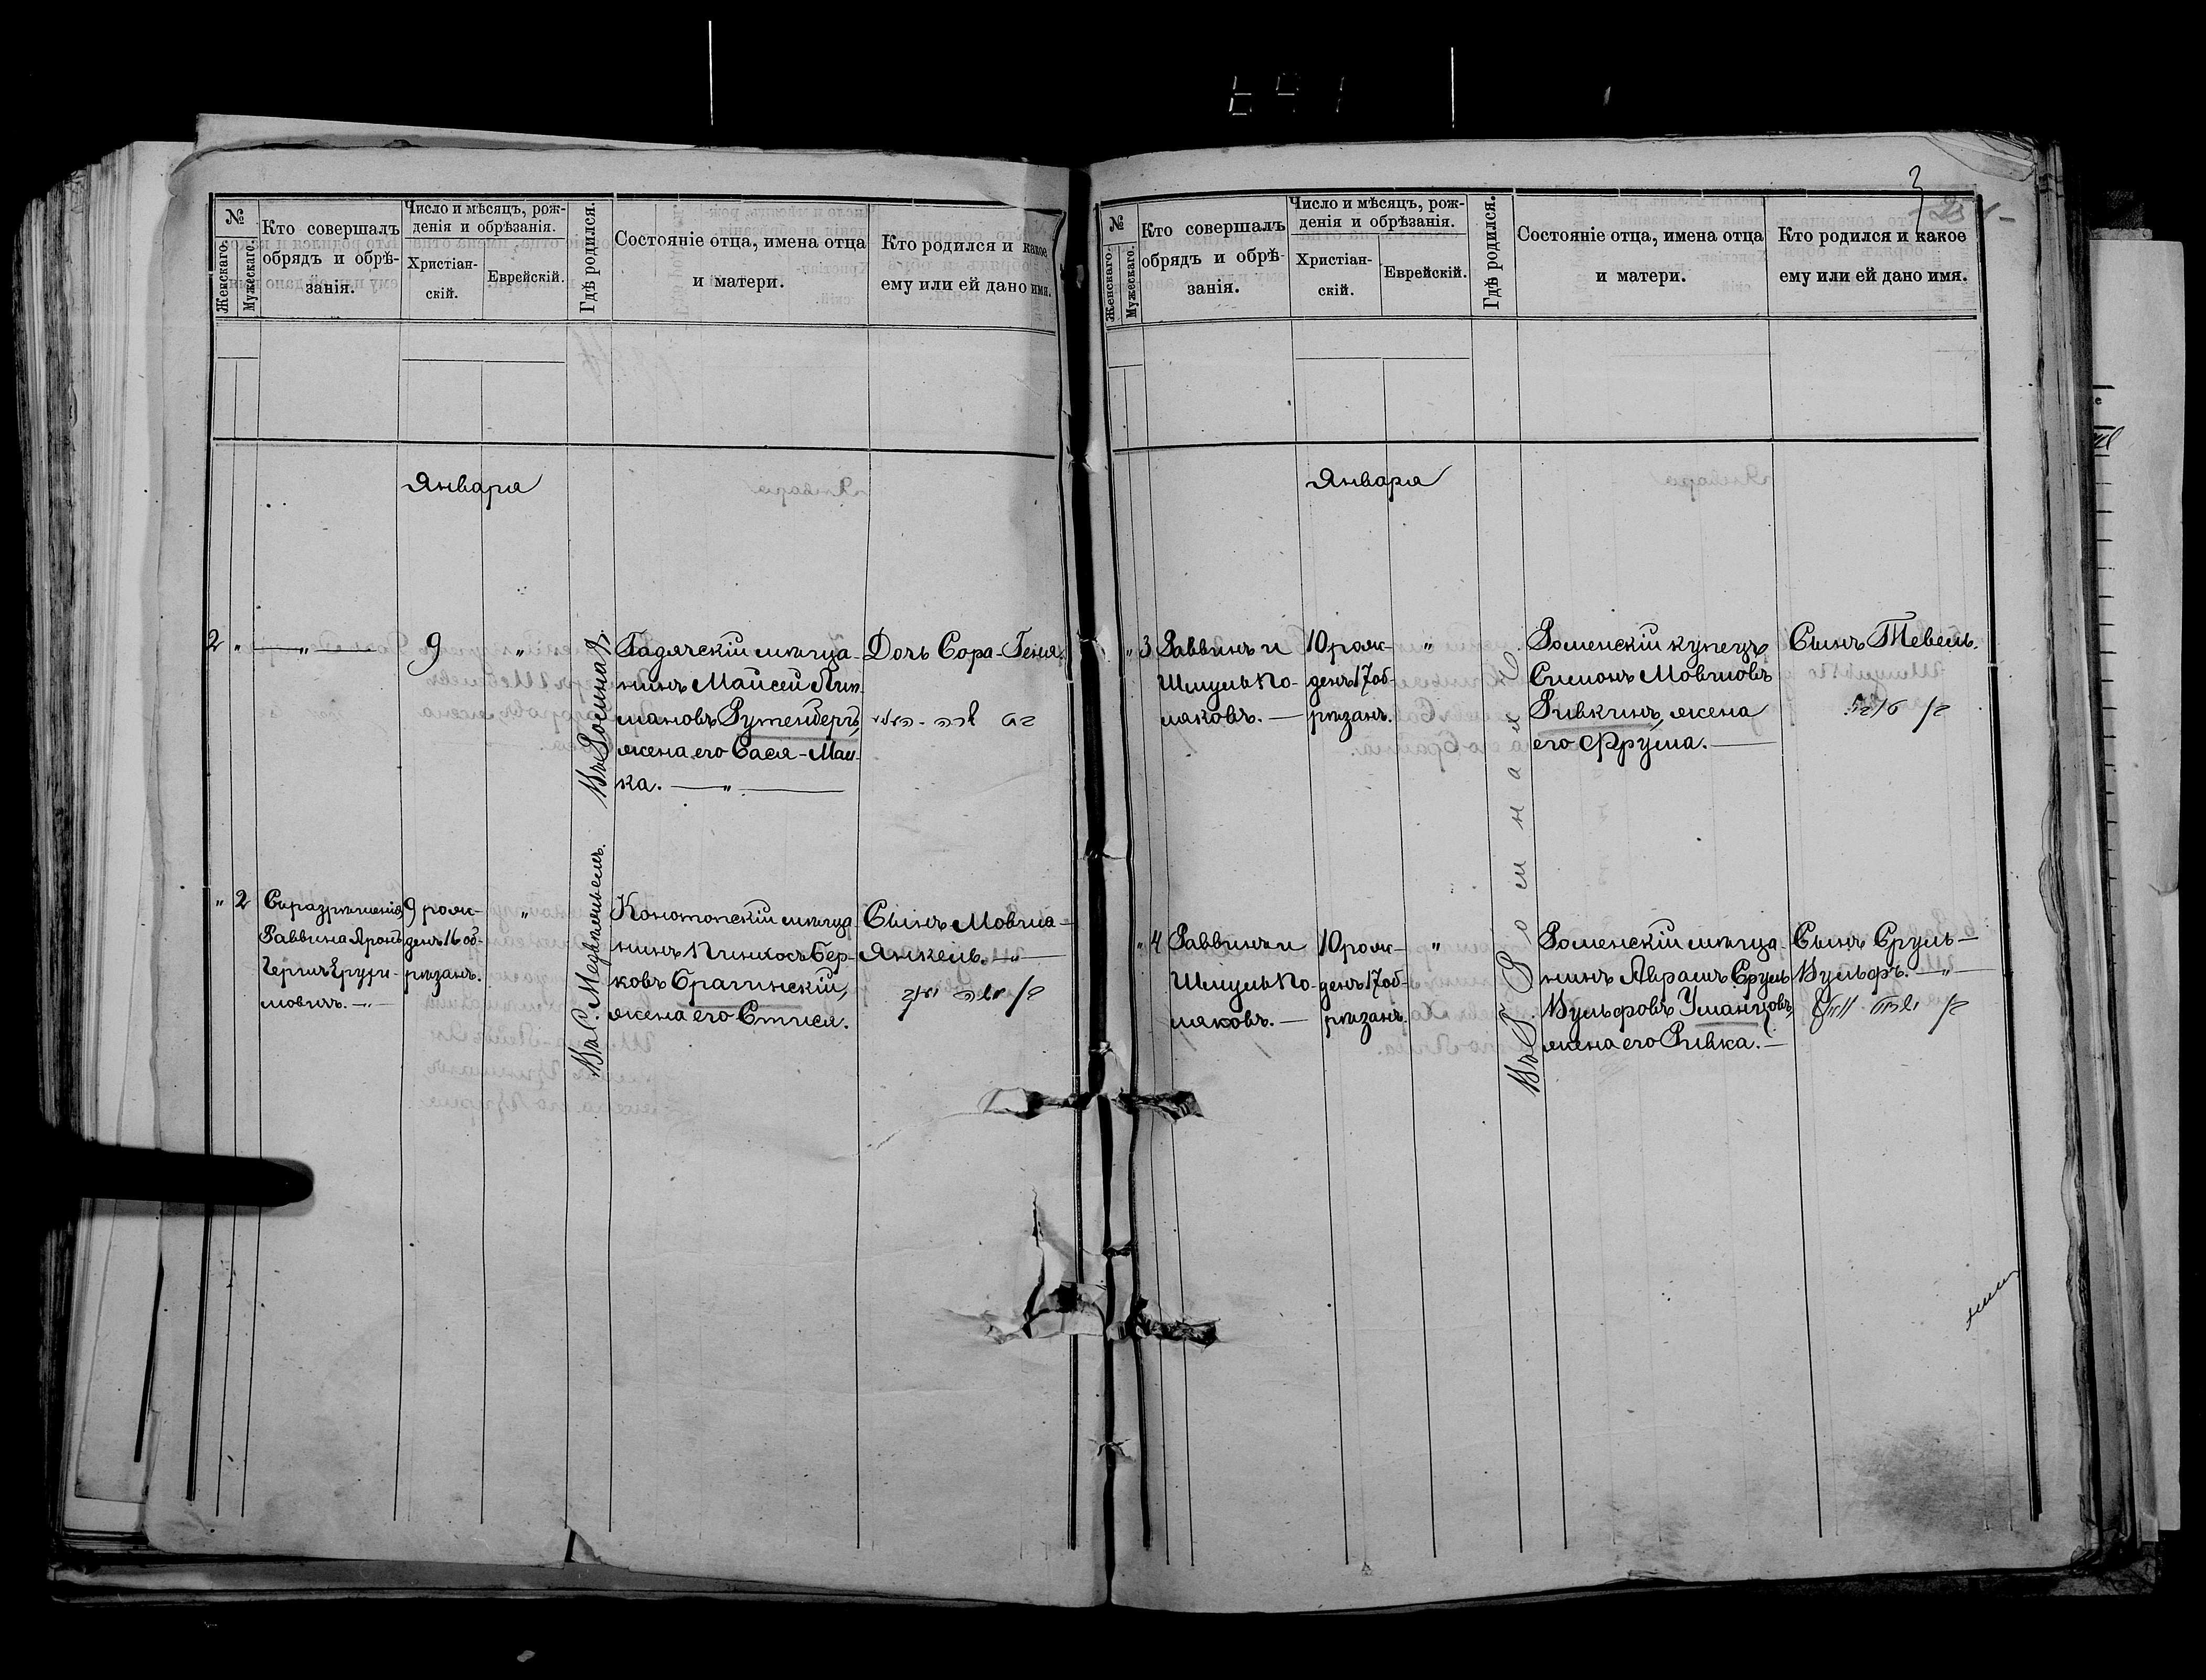 3
№
Женскаго.
Мужескаго.
Кто совершалъ
обрядъ и обрѣ-
занія.
Число и мѣсяцъ, рож-
денія и обрѣзанія.
Христіан-
скій.
Еврейскій.
Гдѣ родился.
Состояніе отца, имена отца
и матери.
Кто родился и какое
ему или ей дано имя.
Января
2 " — " — 9 "
Въ г. Ромнахъ.
Гадячскій мѣща-
нинъ Мойсей
мановъ Рутенбергъ,
жена его Бася-Маш-
ка. — " —
Дочь Сора-Геня.
בת שרה - העני
" 2
Съ разрѣшенія
Раввина Аронъ
мовичъ. — " —
9 рож-
денъ 16 об-
рѣзанъ.
"
Въ С. Медвѣжьемъ.
Конотопскій мѣща-
нинъ Пинхосъ Бер-
ковъ Брагинскій,
жена его Стися.
Сынъ Мовша-
Янкель. — " —
בן משה יעקב
№
Женскаго.
Мужескаго.
Кто совершалъ
обрядъ и обрѣ-
занія.
Число и мѣсяцъ, рож-
денія и обрѣзанія.
Христіан-
скій.
Еврейскій.
Гдѣ родился.
Состояніе отца, имена отца
и матери.
Кто родился и какое
ему или ей дано имя.
Января
" 3
Раввинъ и
Шмуль По-
ляковъ. —
10 рож-
денъ 17 об-
рѣзанъ.
"
Въ Г. Ромнахъ
Роменскій купецъ
Симонъ Мовшовъ
Ривкинъ, жена
его Фрума. —
Сынъ Тевель.
בן
" 4
Раввинъ и
Шмуль По-
ляковъ. —
10 рож-
денъ 17 об-
рѣзанъ.
"
Роменскій мѣща-
нинъ Абрамъ Сруль
Вульфовъ Уманцовъ,
жена его Ривка. —
Сынъ Сруль —
Вульфъ. — " —
בן ישראל וואלף